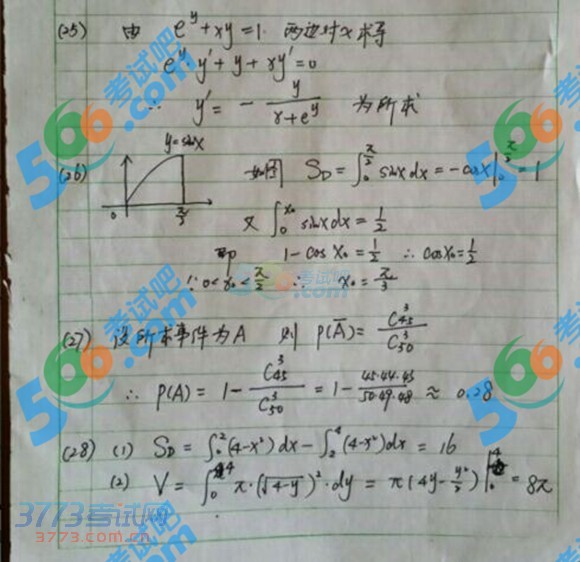 (25) 由 e^y + xy = 1. 两边对x求导
e^y·y' + y + xy' = 0
∴ y' = - y/(x+e^y) 为所求
y=sinx
(26) 如图 S_D = ∫_0^{π/2} sinx dx = -cosx|_0^{π/2} = 1
0 π/2
又 ∫_0^{x₀} sinx dx = 1/2
即 1-cos x₀ = 1/2 ∴ cosx₀ = 1/2
∵ 0<x₀<π/2 ∴ x₀ = π/3
(27) 设所求事件为A 则 P(Ā) = C_{45}^3/C_{50}^3
∴ P(A) = 1 - C_{45}^3/C_{50}^3 = 1 - 45·44·43/50·49·48 ≈ 0.28
(28) (1) S_D = ∫_0^2 (4-x²) dx - ∫_2^4 (4-x²) dx = 16
(2) V = ∫_0^4 π·(√4-y)²·dy = π(4y - y²/2)|_0^4 = 8π
566考试吧.com
3773考试网
3773.com.cn